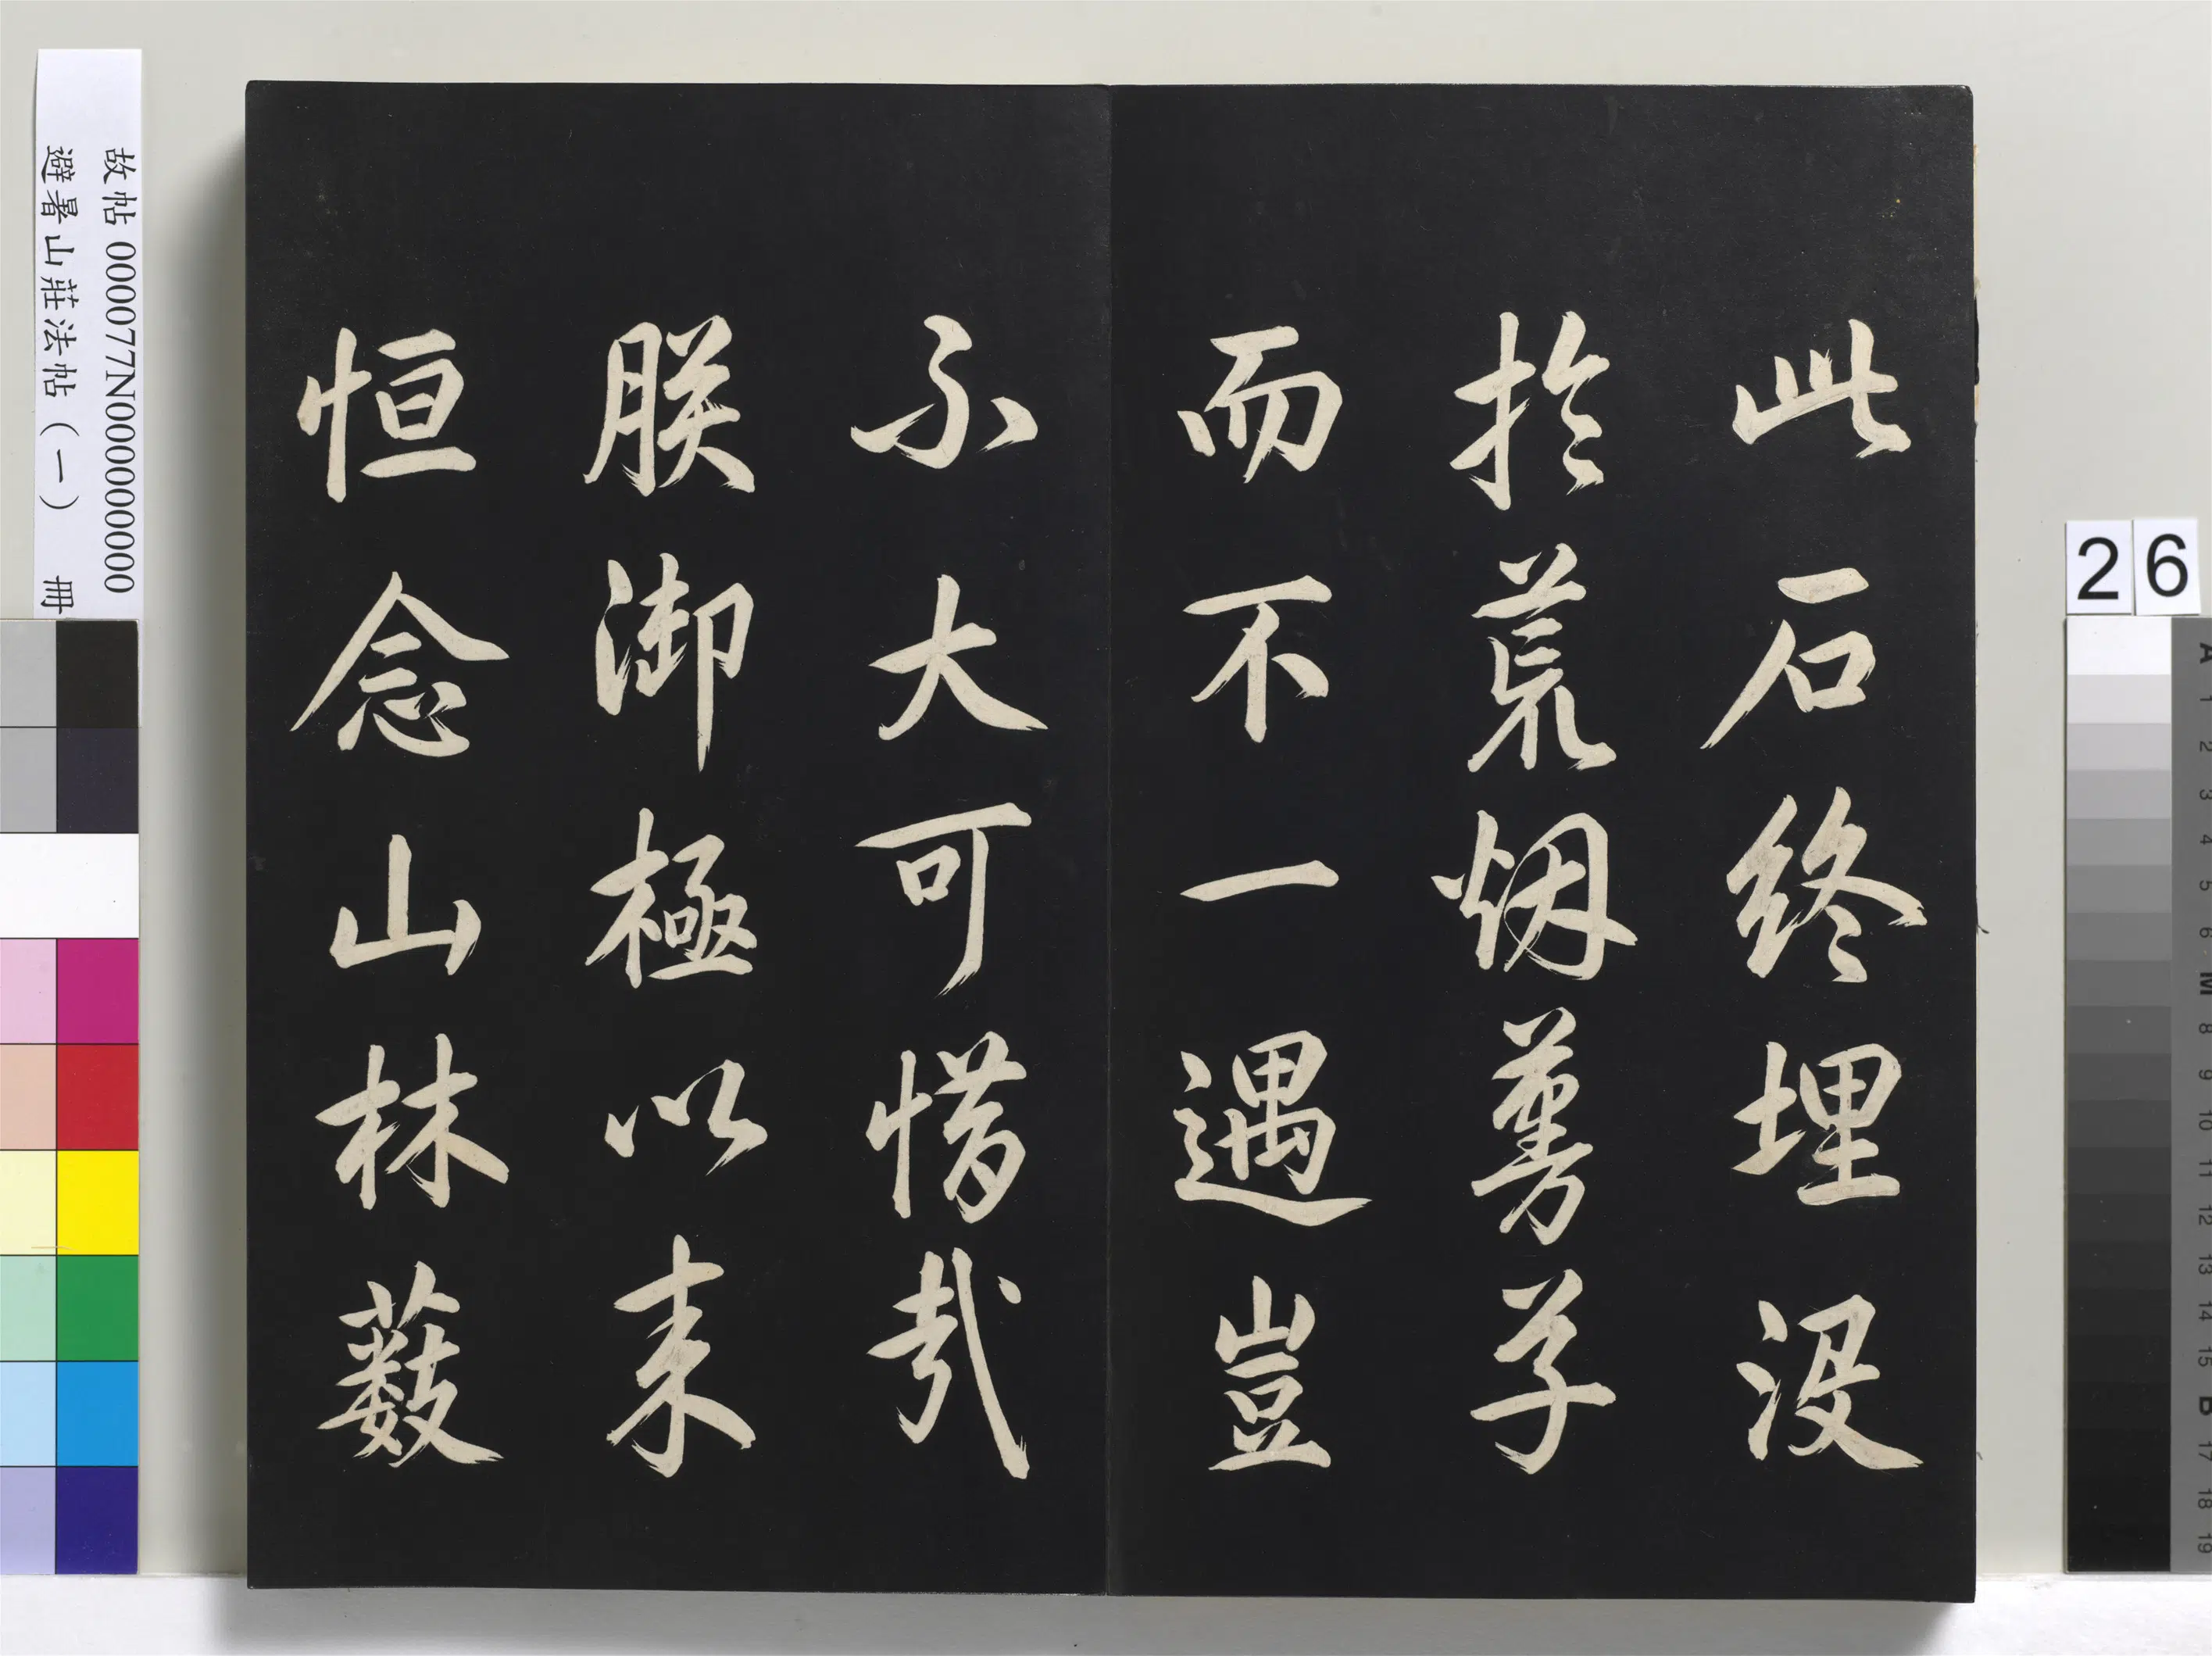 此石終埋沒
於荒烟蔓草
而不一遇豈
不大可惜哉
朕御極以来
恒念山林薮
故帖 000077N000000000
避暑山莊法帖（一） 冊
26
A
1
2
3
4
5
6
M
8
9
10
11
12
13
14
15
B
17
18
19